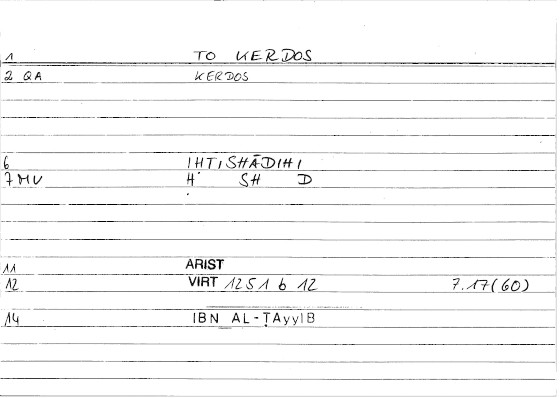 1 TO KERDOS
2 QA KERDOS
6 IHTISHĀDIHI
7 MU Ḥ SH D
11 ARIST
12 VIRT 1251 b 12 7.17(60)
14 IBN AL-ṬAyyIB